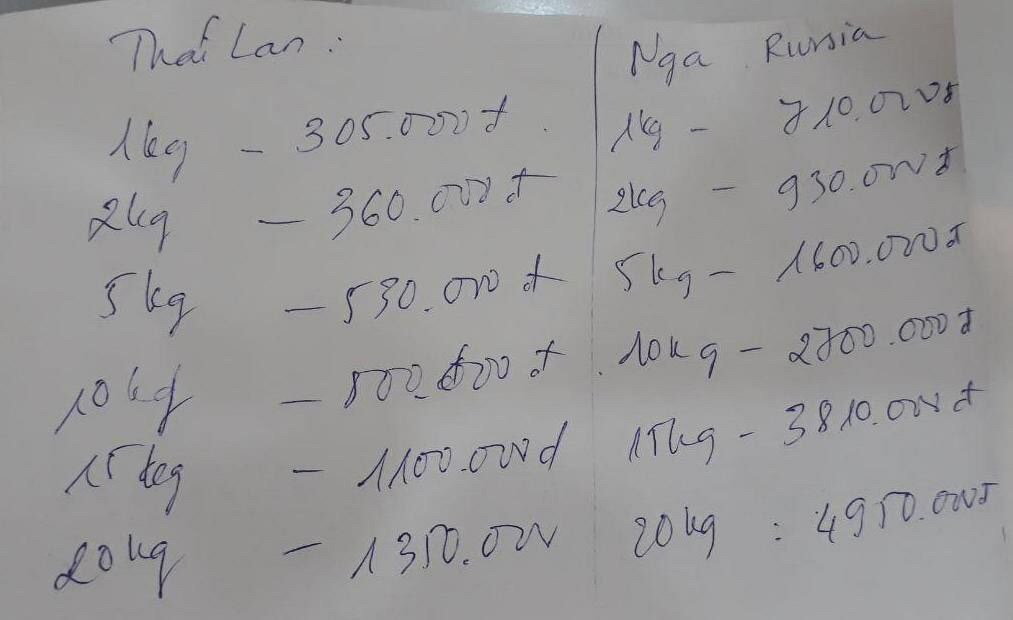 Thái Lan :
1kg - 305.000đ
2kg - 360.000đ
5kg - 530.000đ
10kg - 800.000đ
15kg - 1100.000đ
20kg - 1350.000
Nga Russia
1kg - 710.000đ
2kg - 930.000đ
5kg - 1600.000đ
10kg - 2700.000đ
15kg - 3810.000đ
20kg : 4950.000đ